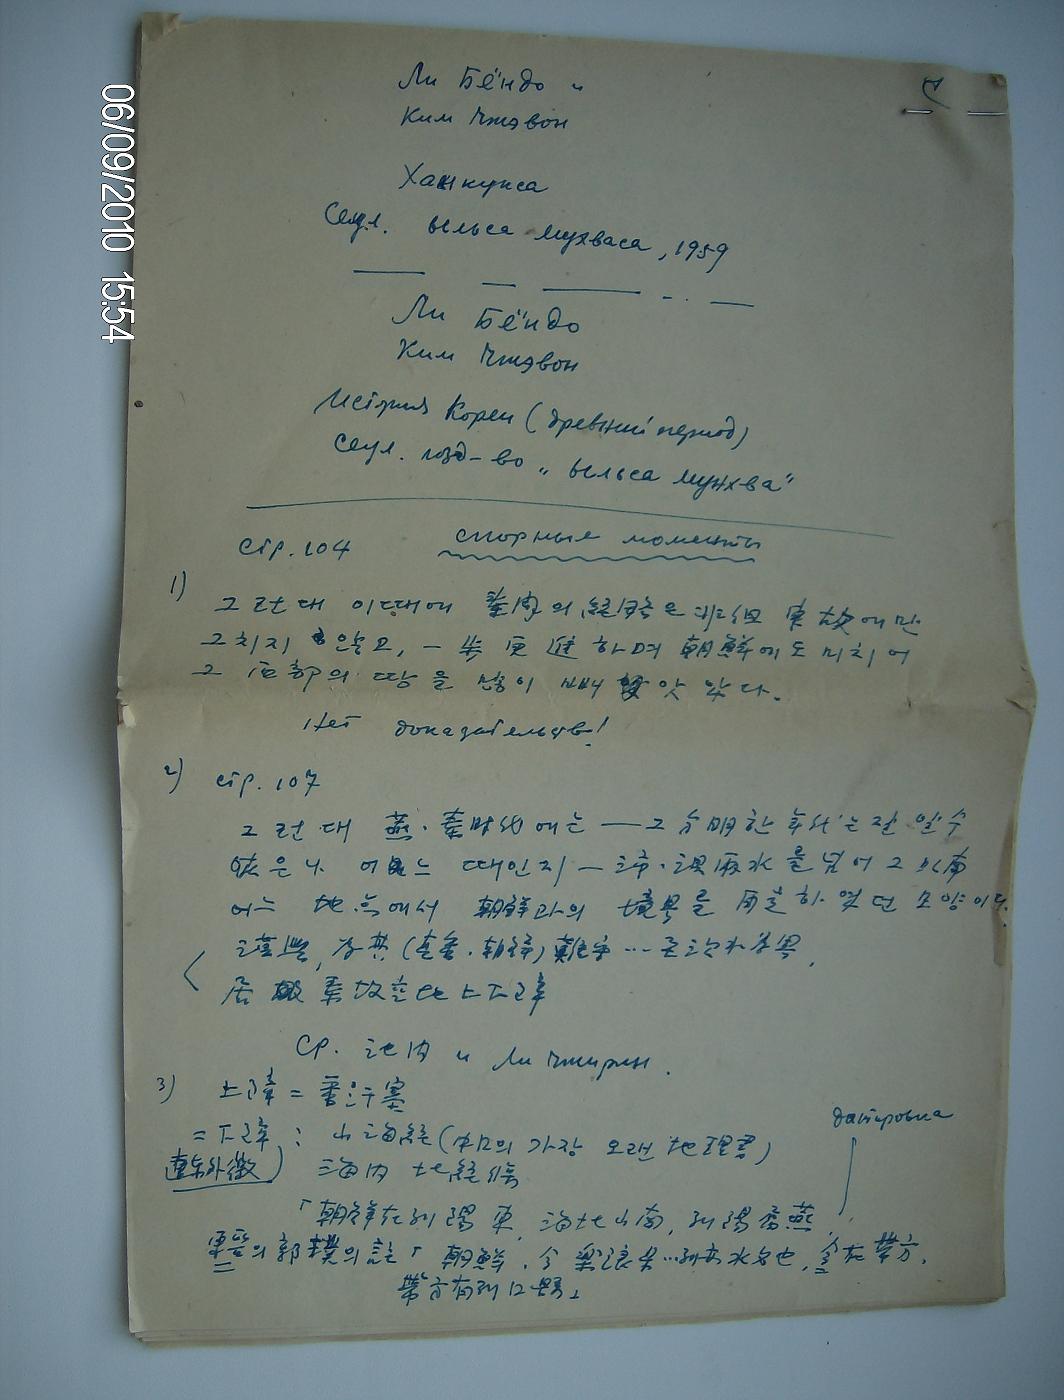 Ли Бёндо и
Ким Чжэвон
Ханкукса
Сеул. Ыльса мунхваса, 1959
Ли Бёндо
Ким Чжэвон
История Кореи (древний период)
Сеул. изд-во „Ыльса мунхва"
стр. 104 спорные моменты
1) 그런대 이때에 의 經略은 東胡에만
그치지 않고, 一步 更進하며 朝鮮에도 미치어
그 西部의 땅을 많이 빼앗았다.
Нет доказательств!
2) стр. 107
그런대 燕·秦時代에는 — 그 分明한 年代는 알수
없으나 어느 때인지 — 水를 넘어 그 以南
어느 地点에서 朝鮮과의 境界를 하였던 모양이다.
朝鮮 難守 …
居 秦故空地上下障
Ср. 池內 и Ли Чжирин.
3) 上障 = 番汗塞
= 下障 : 山海經 (中국의 가장 오랜 地理書)
遼東外徼) 海內
датировка
「朝鮮在列陽東, 海北山南, 列陽屬燕
東晉의 郭璞의 註「朝鮮. 今樂浪 … 水名也, 今在帶方.
帶方有列口縣」
06/09/2010 15:54